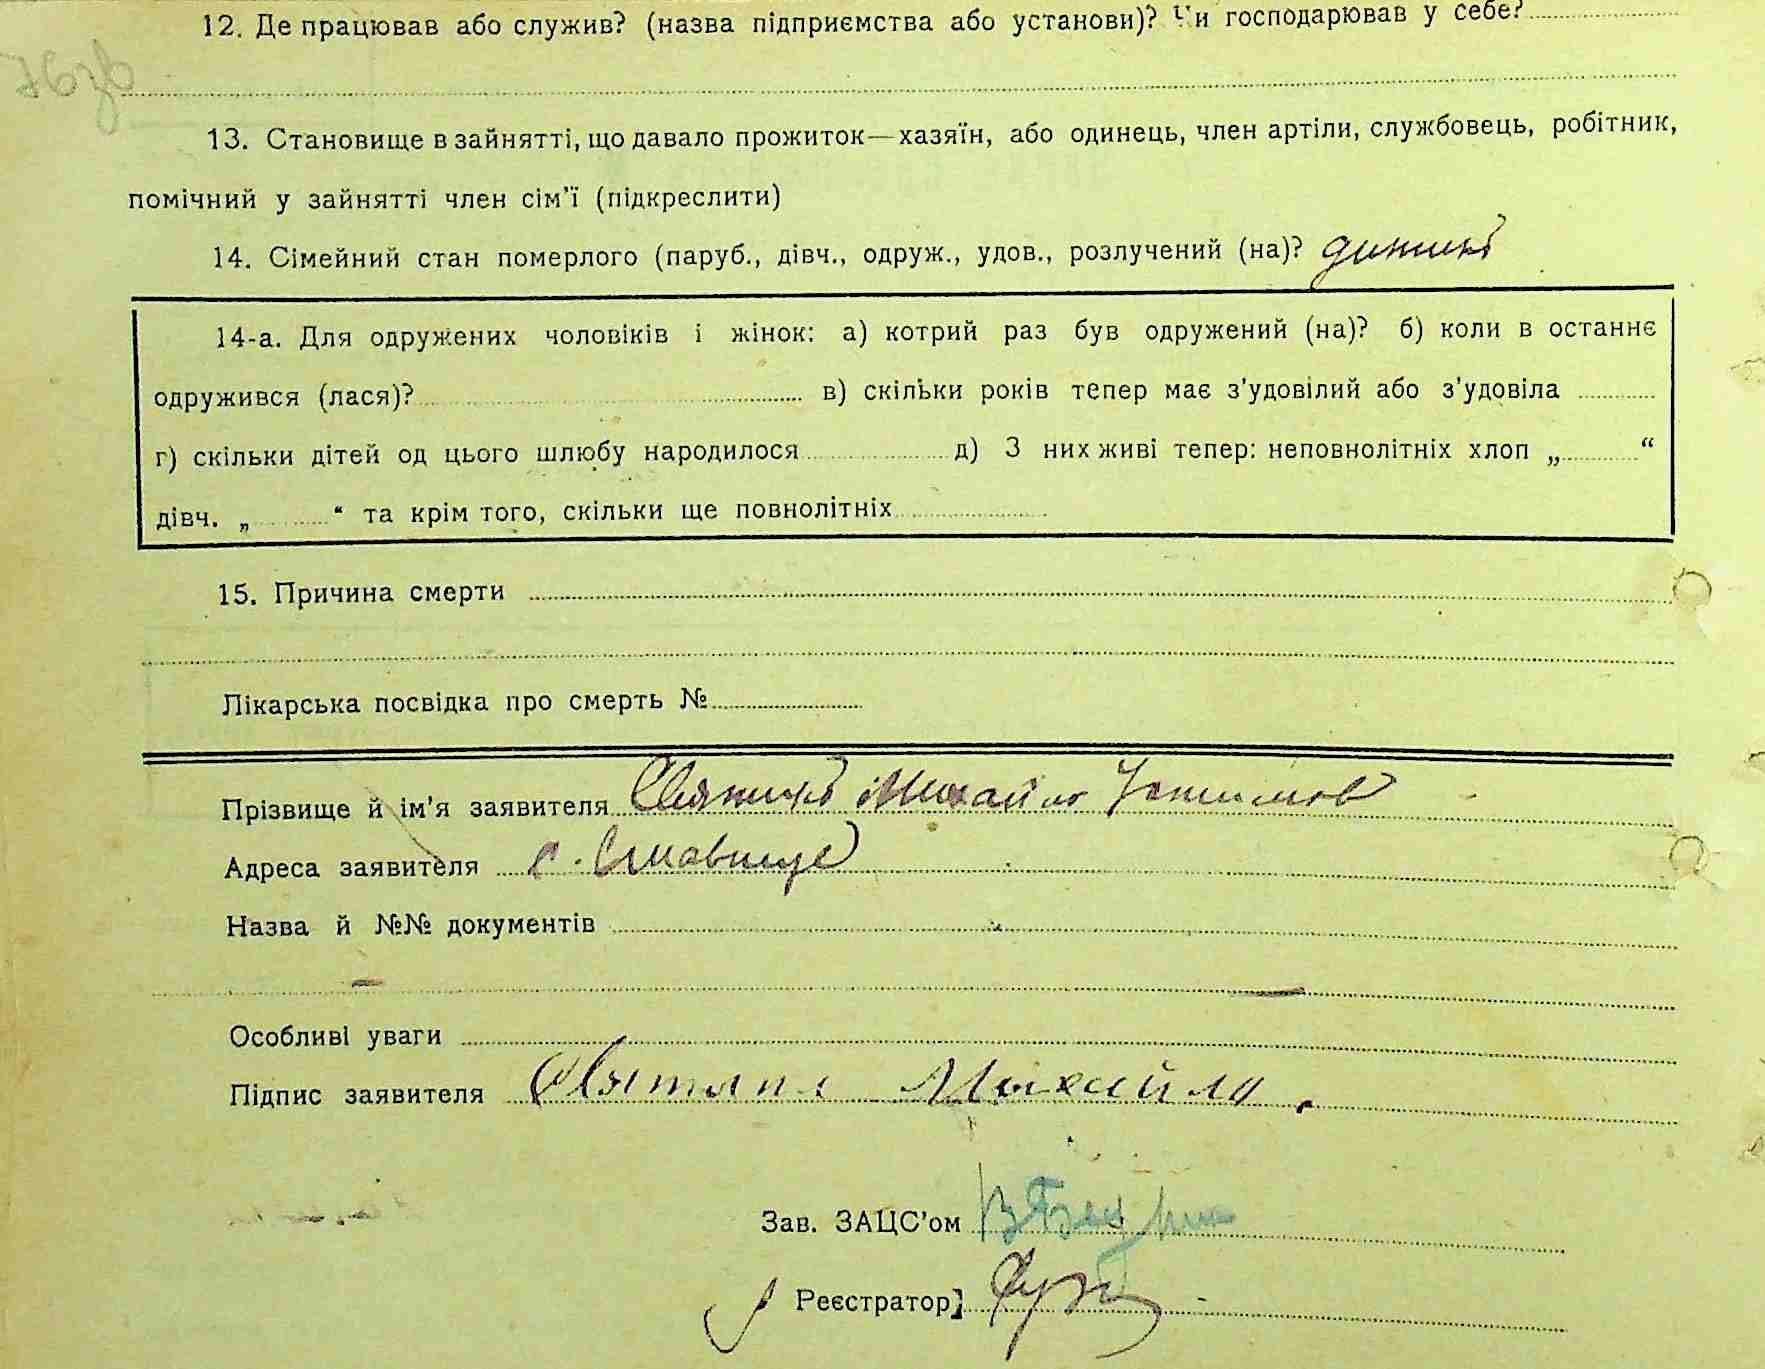 12. Де працював або служив? (назва підприємства або установи)? Чи господарював у себе?
13. Становище в зайнятті, що давало прожиток—хазяїн, або одинець, член артіли, службовець, робітник,
помічний у зайнятті член сім'ї (підкреслити)
14. Сімейний стан померлого (паруб., дівч., одруж., удов., розлучений (на)? дитина
14-а. Для одружених чоловіків і жінок: а) котрий раз був одружений (на)? б) коли в останнє
одружився (лася)? в) скільки років тепер має з'удовілий або з'удовіла
г) скільки дітей од цього шлюбу народилося д) З них живі тепер: неповнолітніх хлоп „ “
дівч. „ “ та крім того, скільки ще повнолітніх
15. Причина смерти
Лікарська посвідка про смерть №
Прізвище й ім'я заявителя Михайло
Адреса заявителя с. Ставище
Назва й №№ документів
Особливі уваги
Підпис заявителя Михайло
Зав. ЗАЦС'ом
Реєстратор